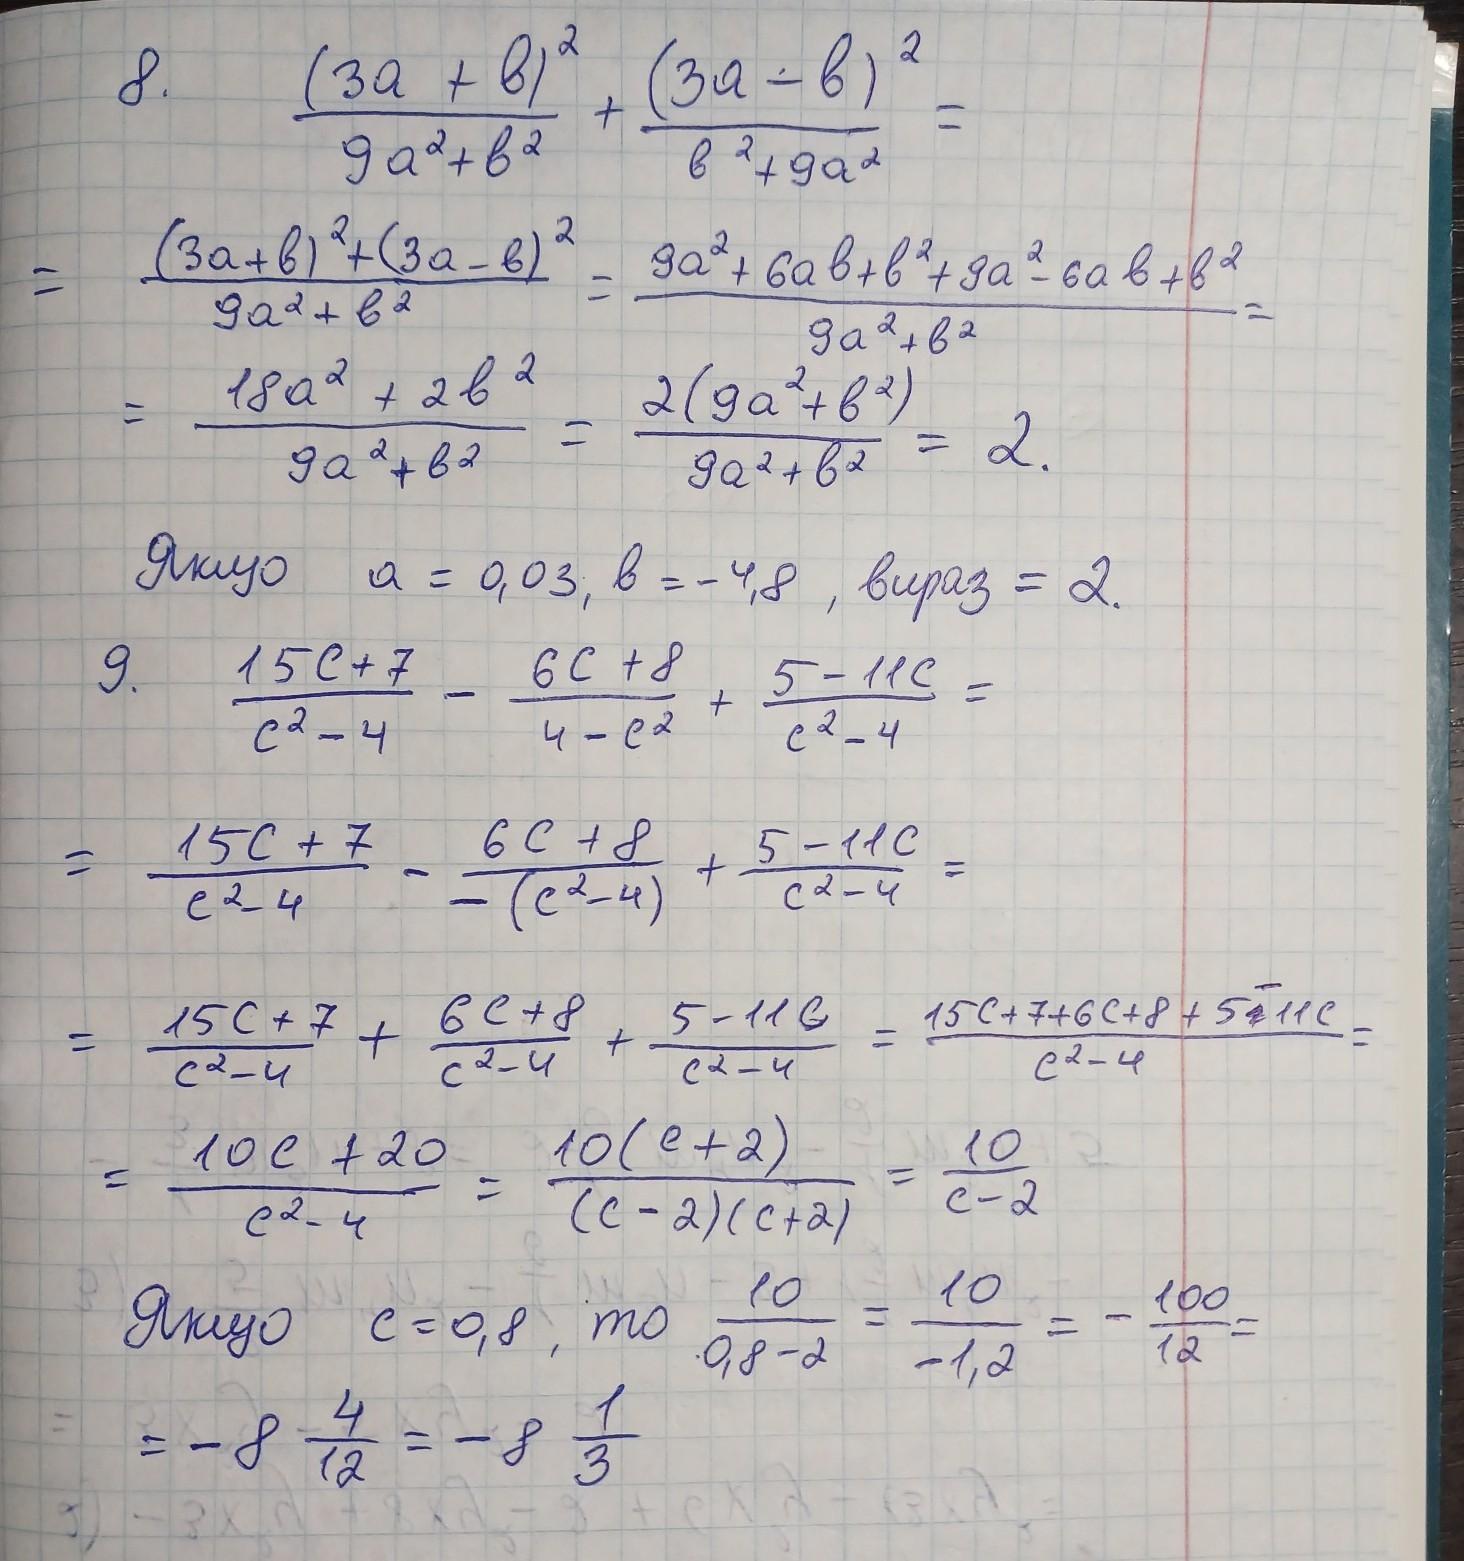 8. (3a + b)² / 9a² + b² + (3a - b)² / b² + 9a² =
= (3a + b)² + (3a - b)² / 9a² + b² = 9a² + 6ab + b² + 9a² - 6ab + b² / 9a² + b² =
= 18a² + 2b² / 9a² + b² = 2(9a² + b²) / 9a² + b² = 2.
Якщо a = 0,03; b = -4,8, вираз = 2.
9. 15c + 7 / c² - 4 - 6c + 8 / 4 - c² + 5 - 11c / c² - 4 =
= 15c + 7 / c² - 4 - 6c + 8 / -(c² - 4) + 5 - 11c / c² - 4 =
= 15c + 7 / c² - 4 + 6c + 8 / c² - 4 + 5 - 11c / c² - 4 = 15c + 7 + 6c + 8 + 5 - 11c / c² - 4 =
= 10c + 20 / c² - 4 = 10(c + 2) / (c - 2)(c + 2) = 10 / c - 2
Якщо c = 0,8, то 10 / 0,8 - 2 = 10 / -1,2 = - 100 / 12 =
= - 8 4/12 = - 8 1/3